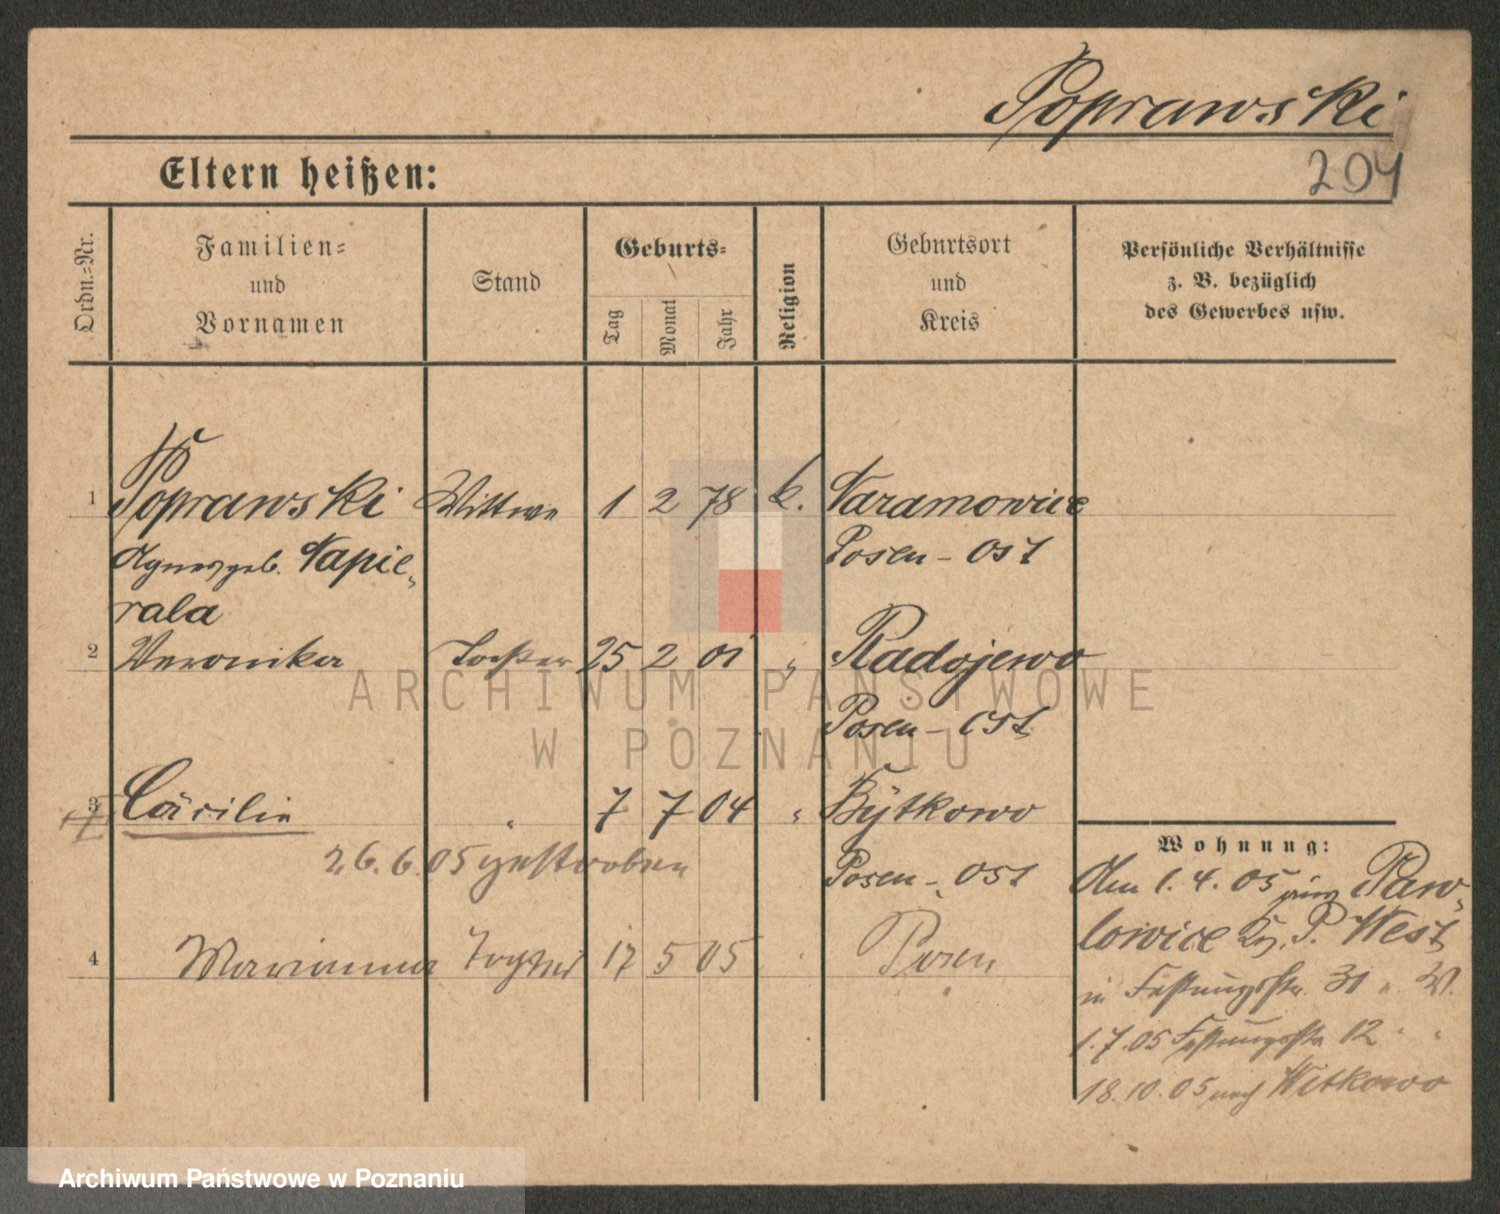 Poprawski
204
Eltern heißen:
Ordn.-Nr.
Familien-
und
Vornamen
Stand
Geburts-
Tag
Monat
Jahr
Religion
Geburtsort
und
Kreis
Persönliche Verhältnisse
z. B. bezüglich
des Gewerbes usw.
1 Poprawski Wittwe 1 2 78 k. Naramowice
Agnes geb. Napie- Posen - Ost
rala
2 Veronika Tochter 25 2 01 " Radojewo
Posen - Ost
3 Cäcilie " 7 7 04 " Bytkowo
26.6.05 gestorben
Posen - Ost
4 Marianna Tochter 17 5 05 Posen
Wohnung:
Am 1.4.05 von Paw-
lowice Kr. P. West
in Festungsstr. 31 " W.
1.7.05 Festungsstr 12 " "
18.10.05 nach Witkowo
ARCHIWUM PAŃSTWOWE
W POZNANIU
Archiwum Państwowe w Poznaniu